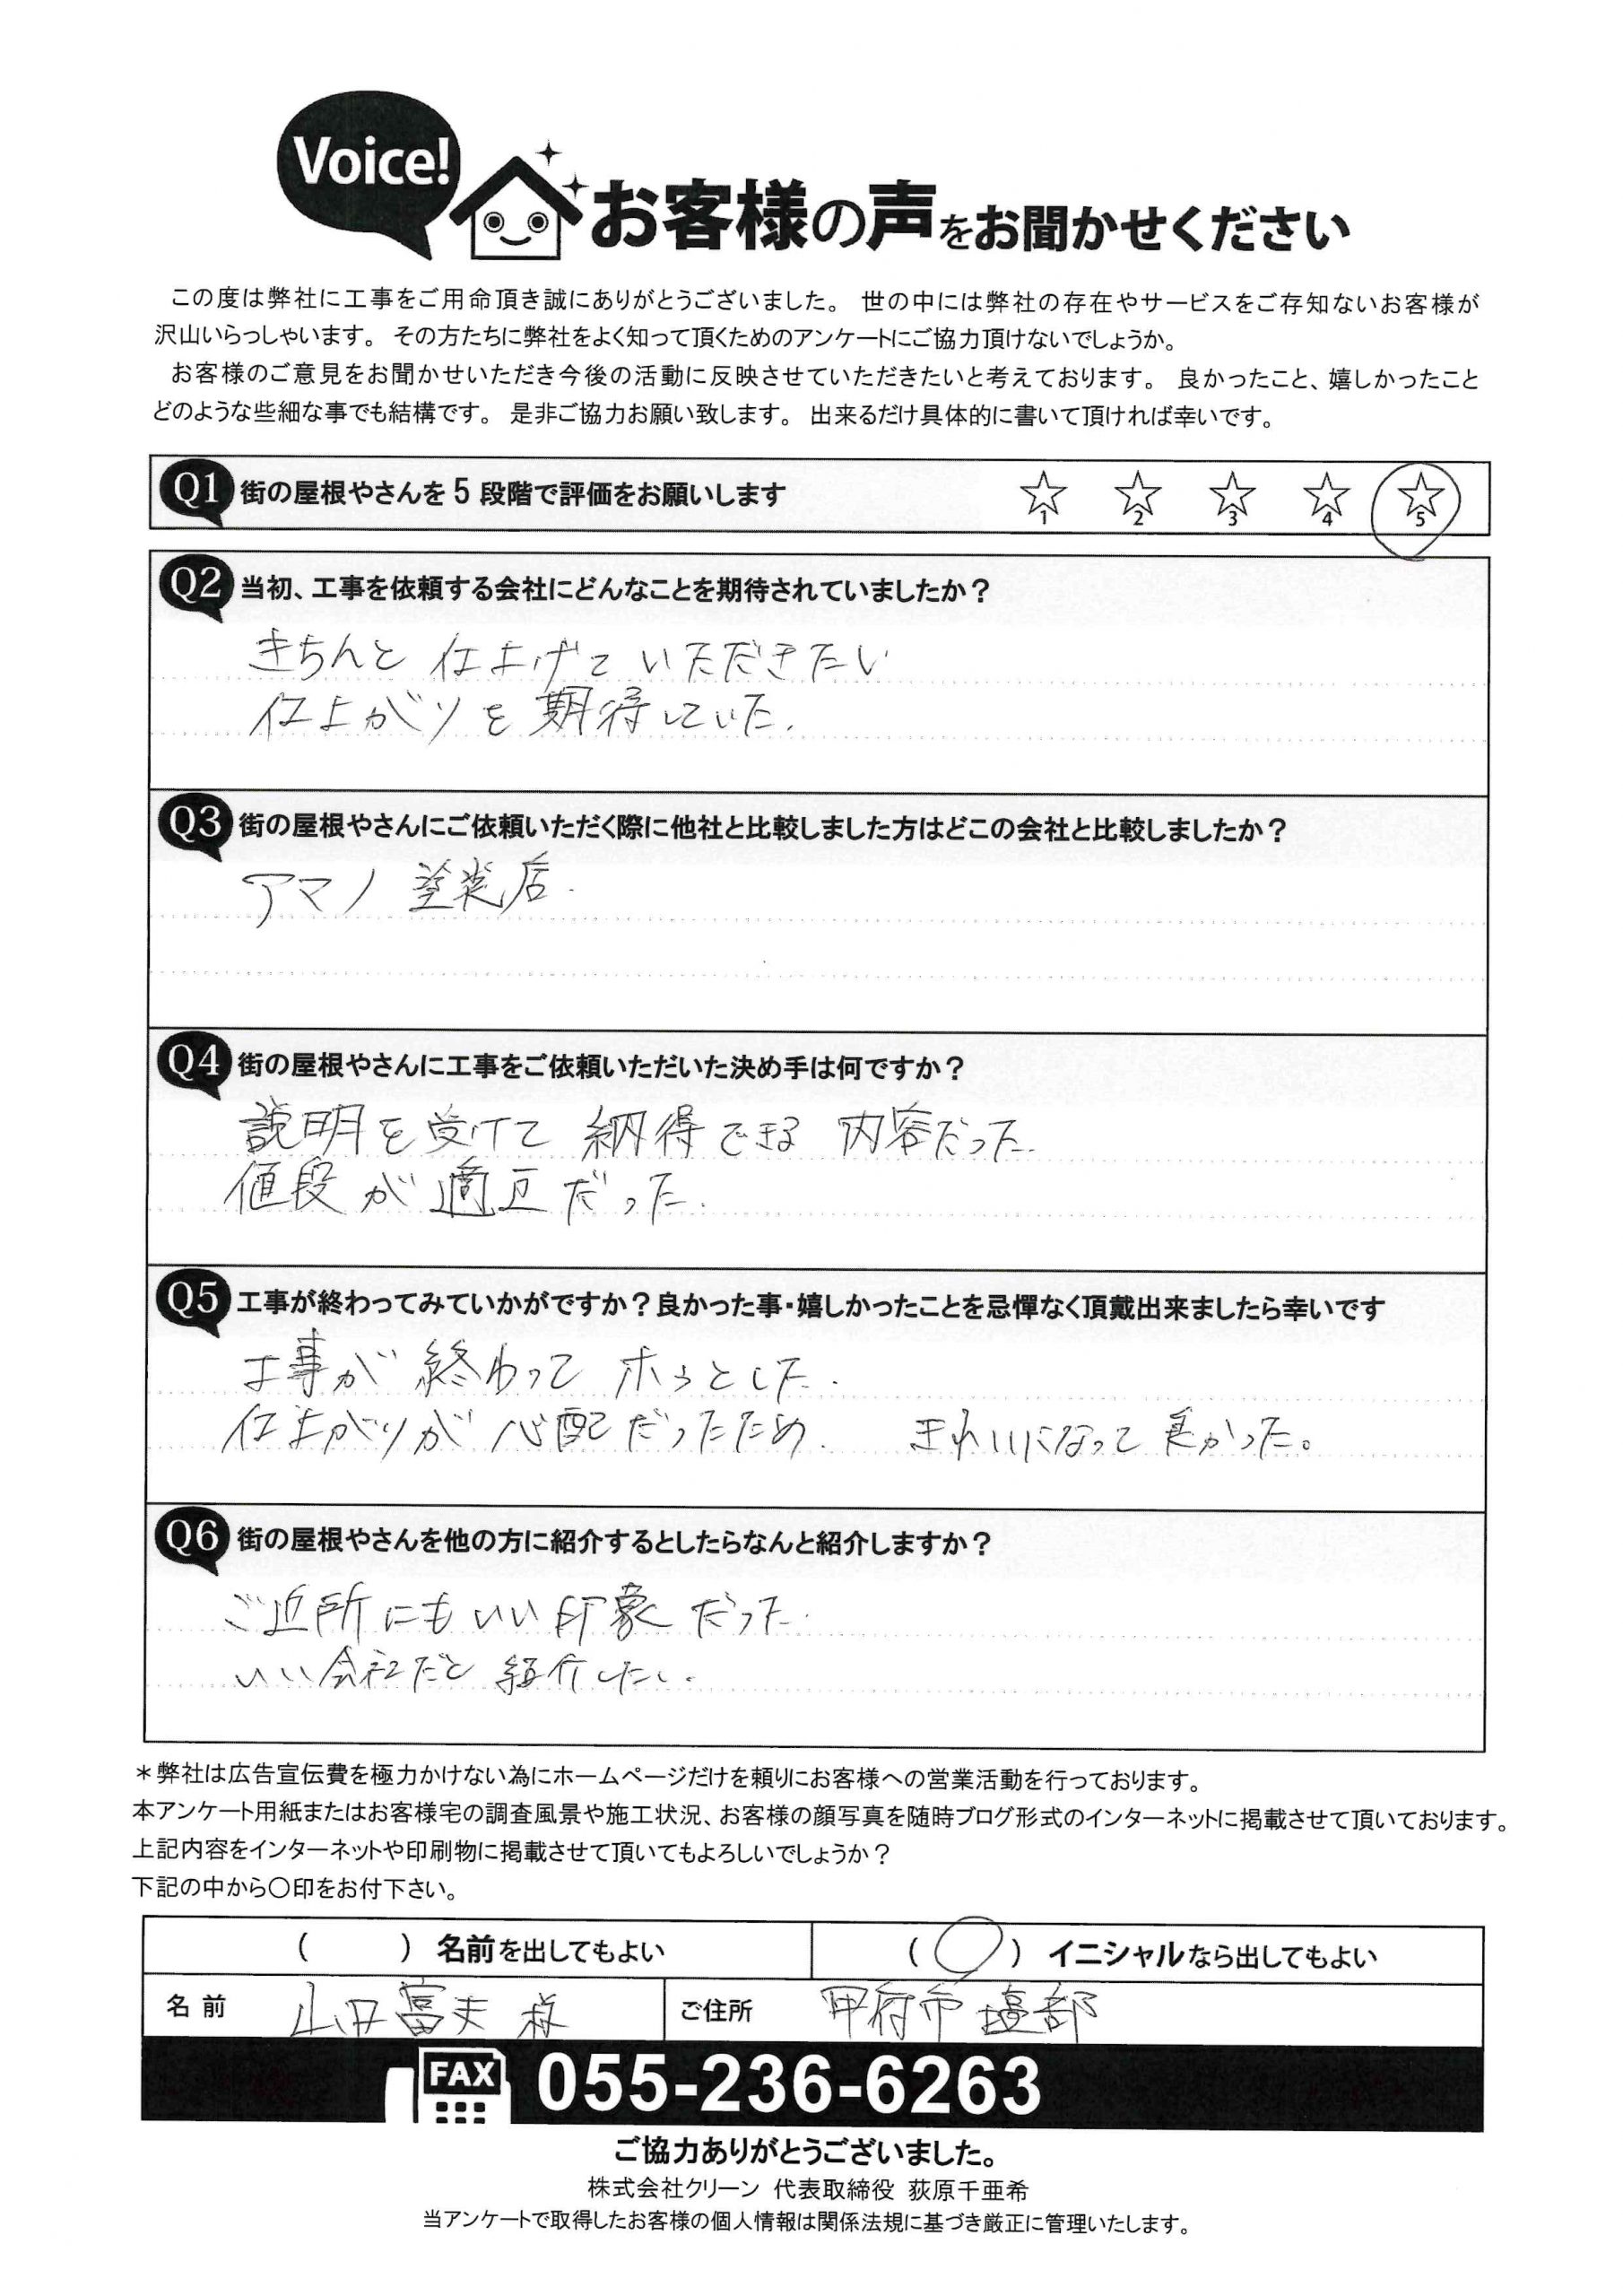 Voice!
お客様の声をお聞かせください
この度は弊社に工事をご用命頂き誠にありがとうございました。 世の中には弊社の存在やサービスをご存知ないお客様が
沢山いらっしゃいます。 その方たちに弊社をよく知って頂くためのアンケートにご協力頂けないでしょうか。
お客様のご意見をお聞かせいただき今後の活動に反映させていただきたいと考えております。 良かったこと、嬉しかったこと
どのような些細な事でも結構です。 是非ご協力お願い致します。 出来るだけ具体的に書いて頂ければ幸いです。
Q1 街の屋根やさんを5段階で評価をお願いします ☆1 ☆2 ☆3 ☆4 ☆5
Q2 当初、工事を依頼する会社にどんなことを期待されていましたか？
きちんと仕上げていただきたい
仕上がりを期待していた.
Q3 街の屋根やさんにご依頼いただく際に他社と比較しました方はどこの会社と比較しましたか？
アマノ 塗装店.
Q4 街の屋根やさんに工事をご依頼いただいた決め手は何ですか？
説明を受けて 納得できる 内容だった.
値段が適正だった.
Q5 工事が終わってみていかがですか？良かった事・嬉しかったことを忌憚なく頂戴出来ましたら幸いです
工事が終わって ホっとした.
仕上がりが心配だったため. きれいになって良かった。
Q6 街の屋根やさんを他の方に紹介するとしたらなんと紹介しますか？
ご近所にもいい印象だった.
いい会社だと 紹介したい.
＊弊社は広告宣伝費を極力かけない為にホームページだけを頼りにお客様への営業活動を行っております。
本アンケート用紙またはお客様宅の調査風景や施工状況、お客様の顔写真を随時ブログ形式のインターネットに掲載させて頂いております。
上記内容をインターネットや印刷物に掲載させて頂いてもよろしいでしょうか？
下記の中から〇印をお付下さい。
（　）名前を出してもよい （〇）イニシャルなら出してもよい
名前 富夫 様 ご住所 甲府市塩部
FAX 055-236-6263
ご協力ありがとうございました。
株式会社クリーン 代表取締役 荻原千亜希
当アンケートで取得したお客様の個人情報は関係法規に基づき厳正に管理いたします。